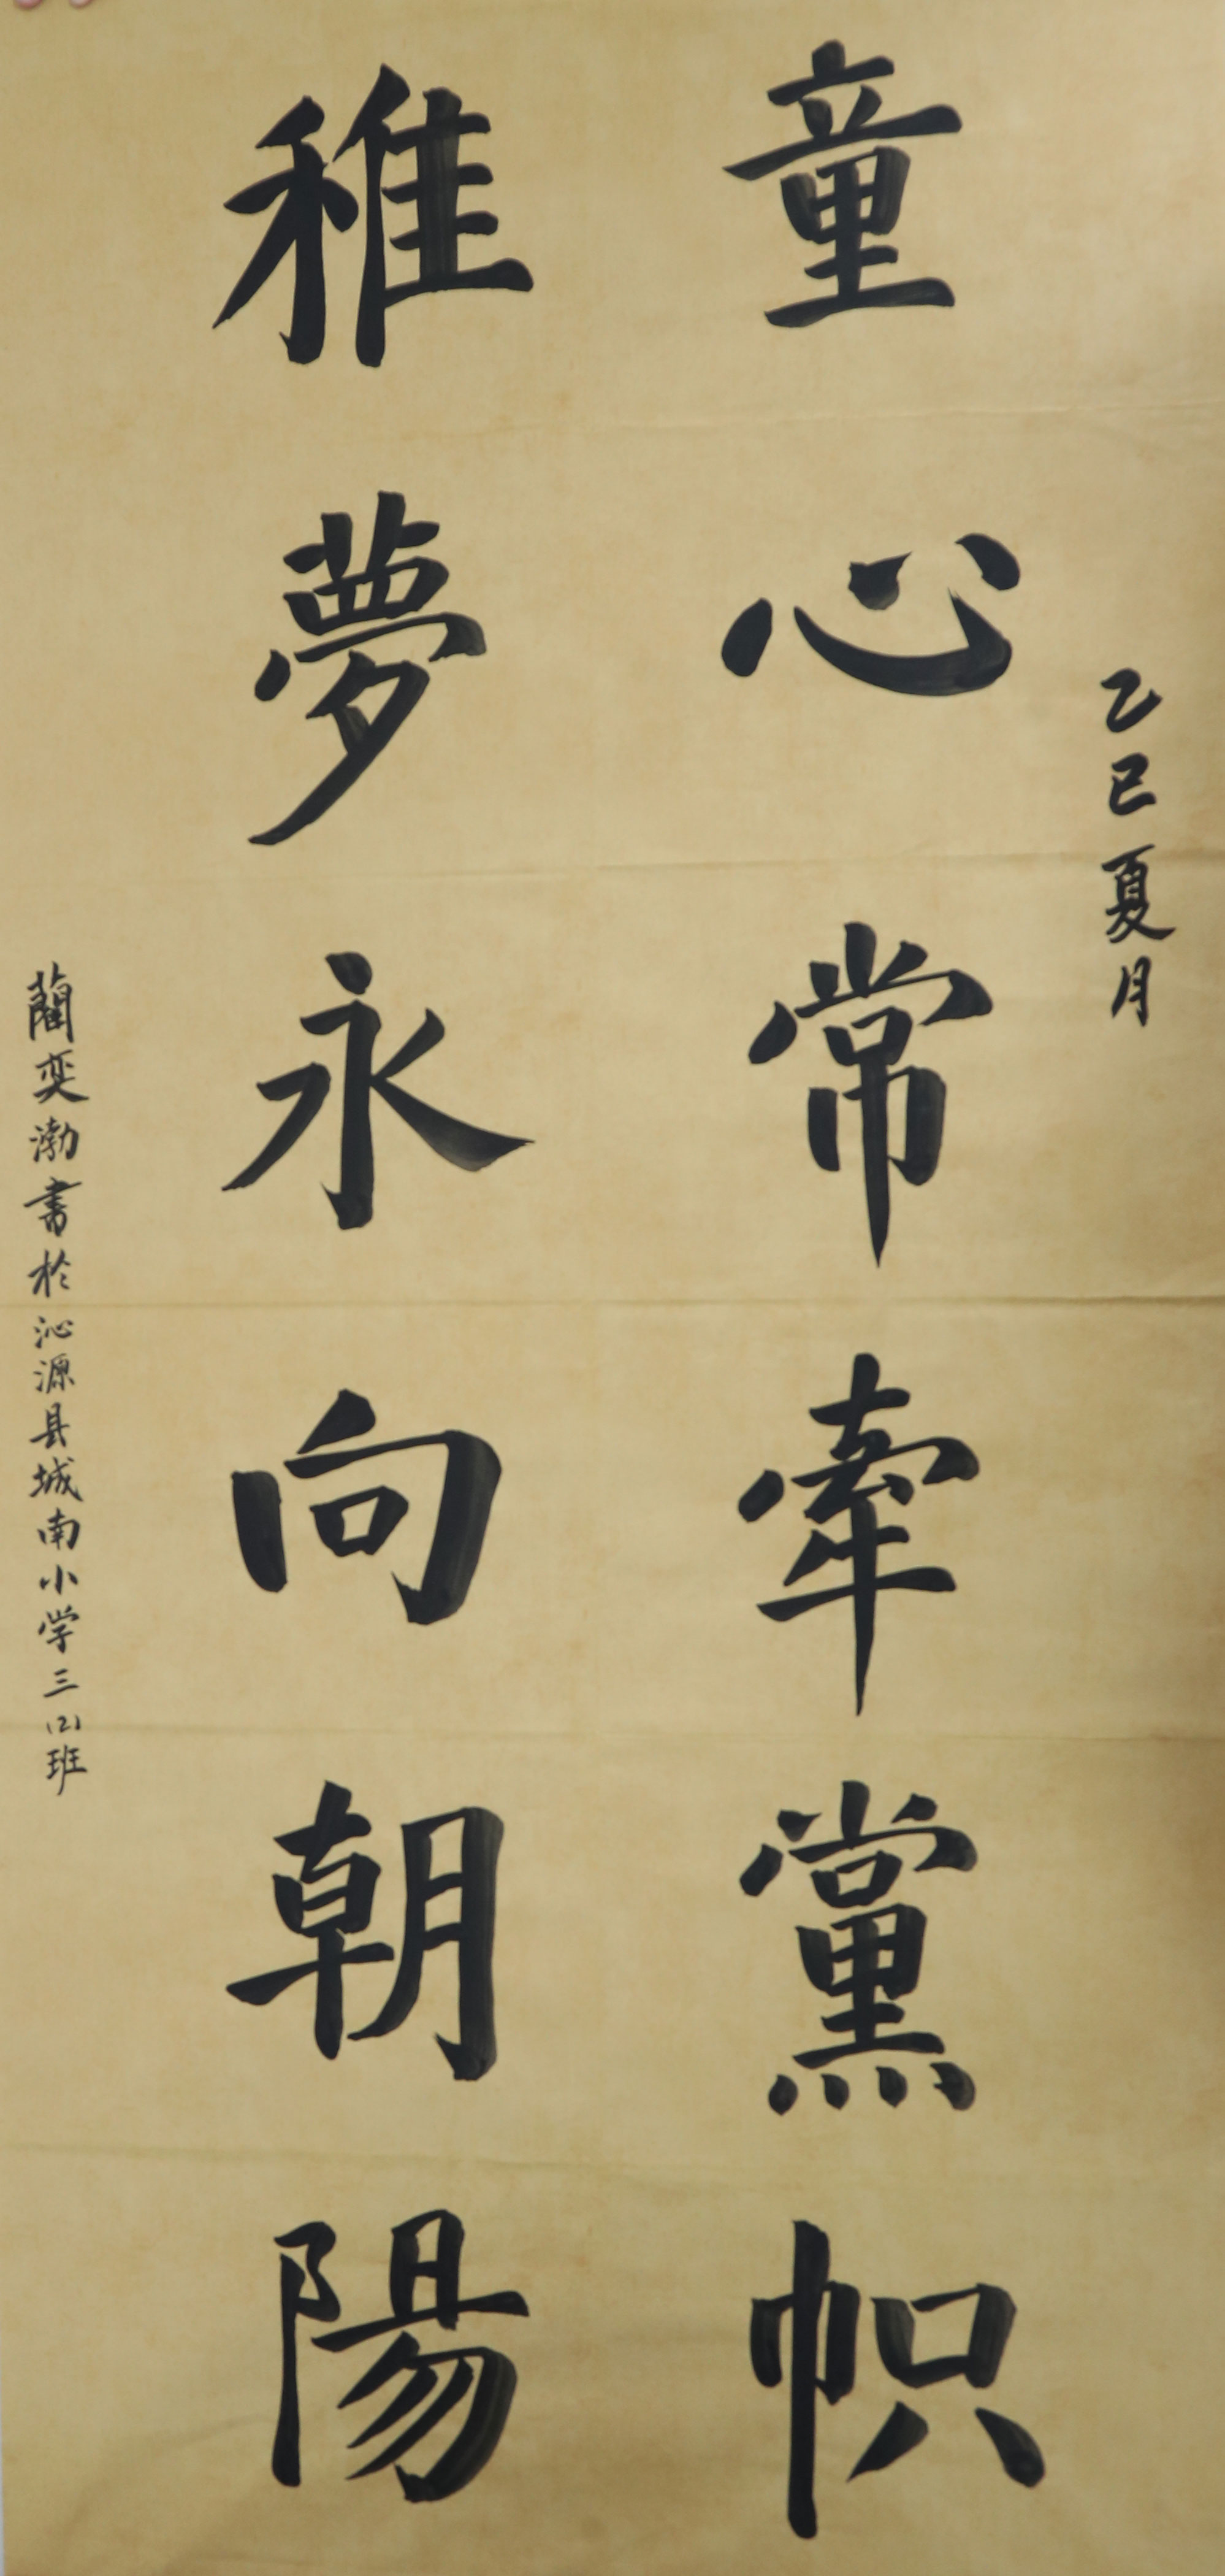 乙巳夏月
童心常牽黨帜
稚夢永向朝陽
藺奕渤書於沁源县城南小学三(2)班